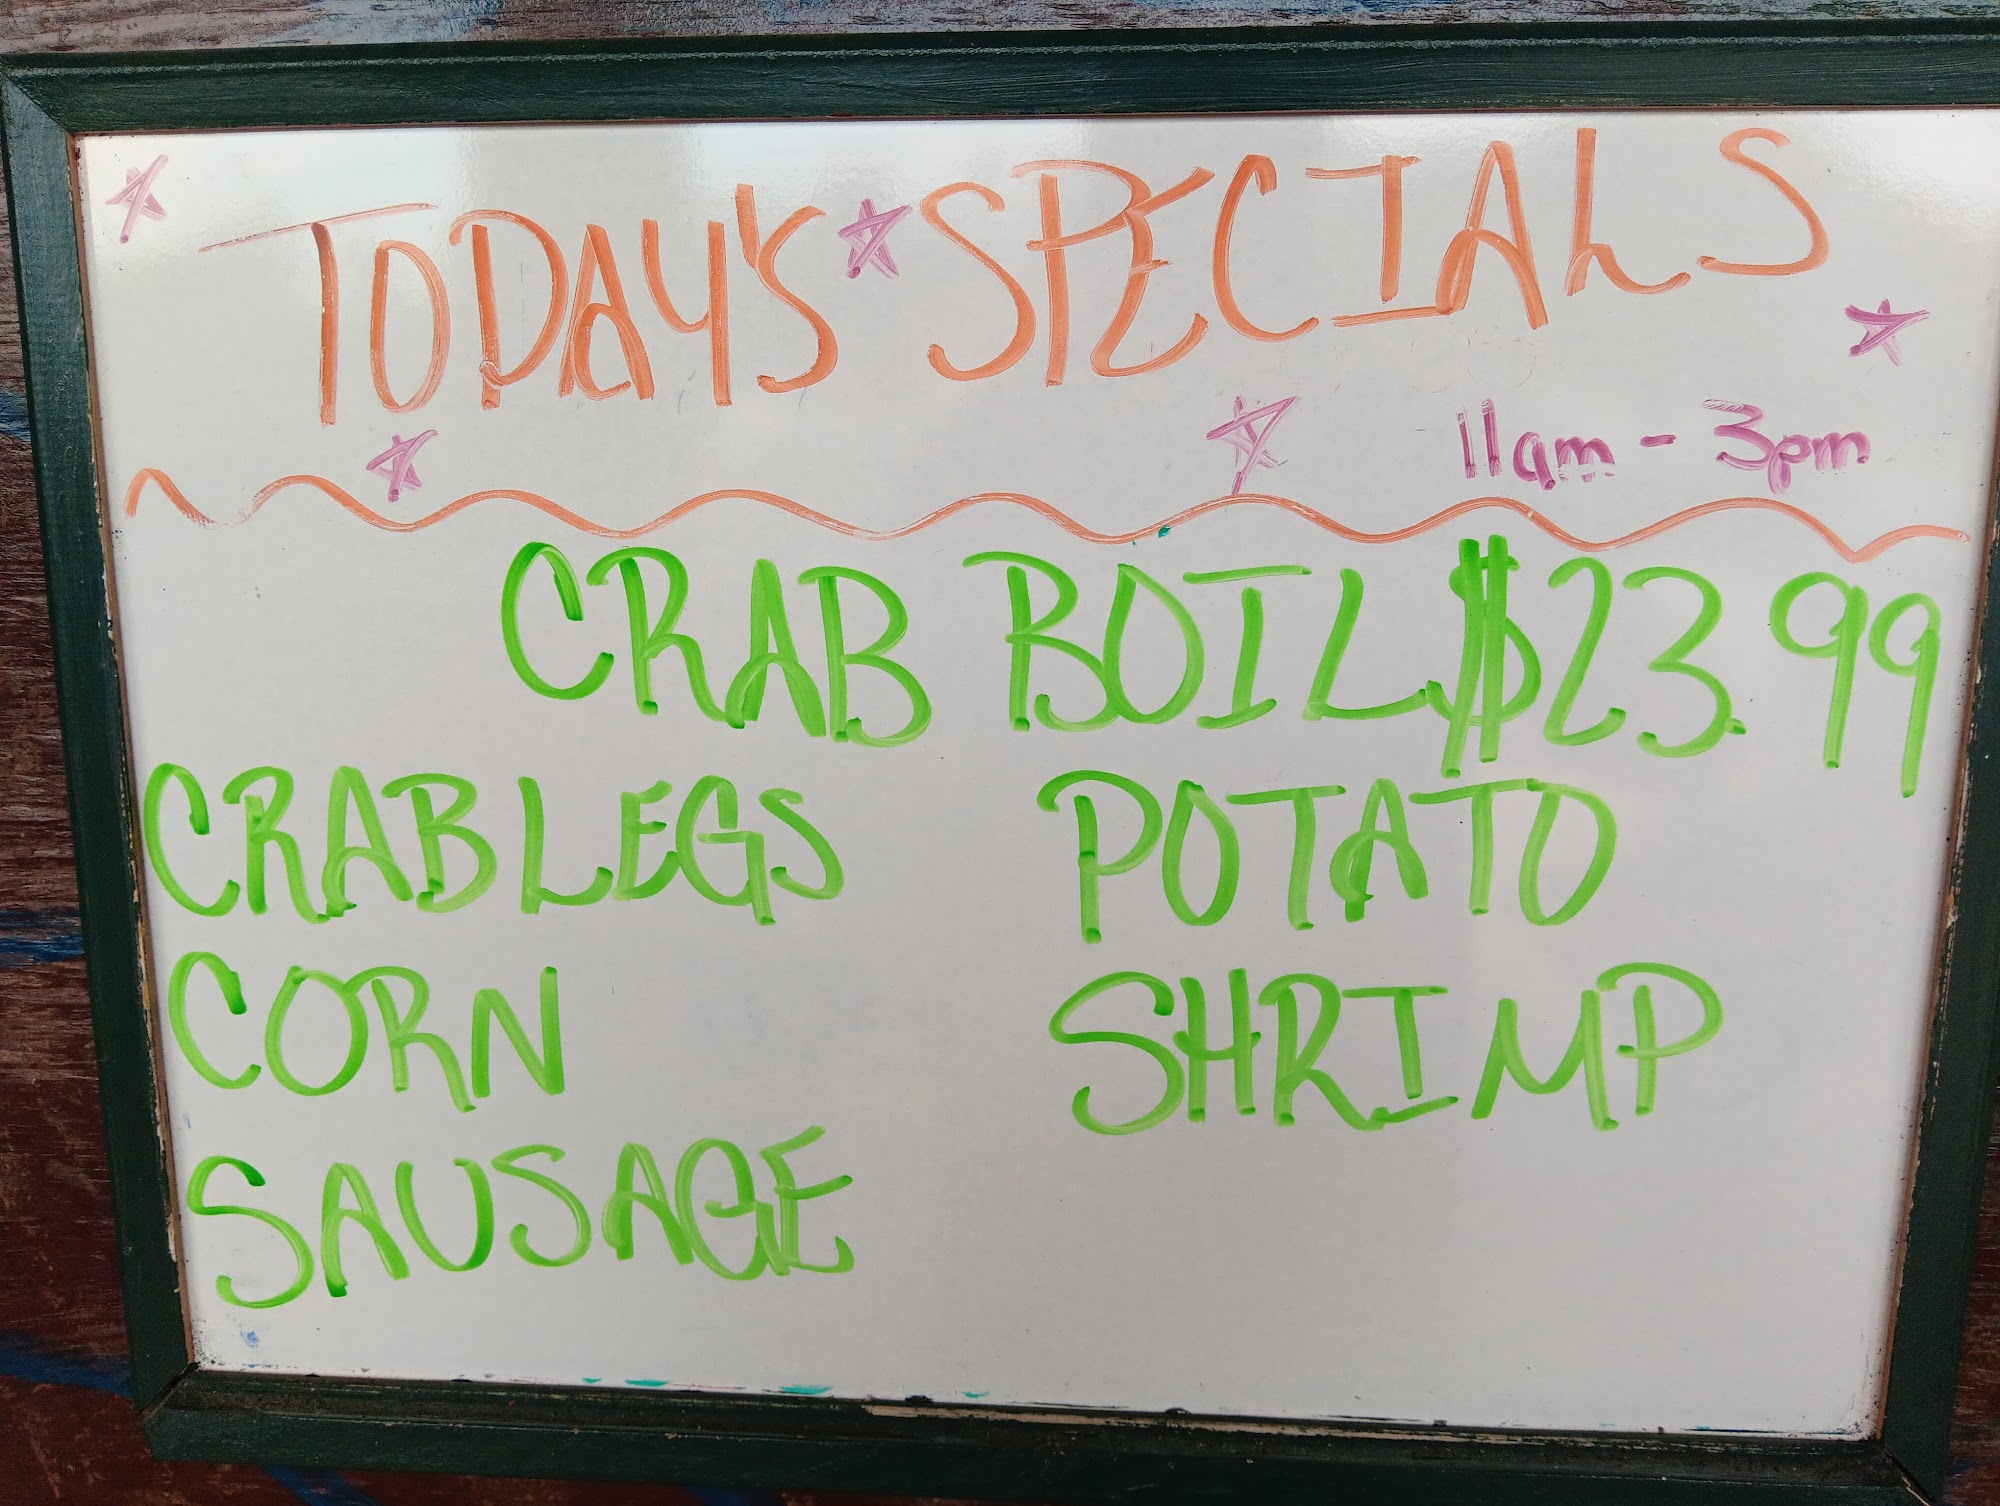 TODAY'S SPECIALS
11am - 3pm
CRAB BOIL $23.99
CRAB LEGS POTATO
CORN SHRIMP
SAUSAGE